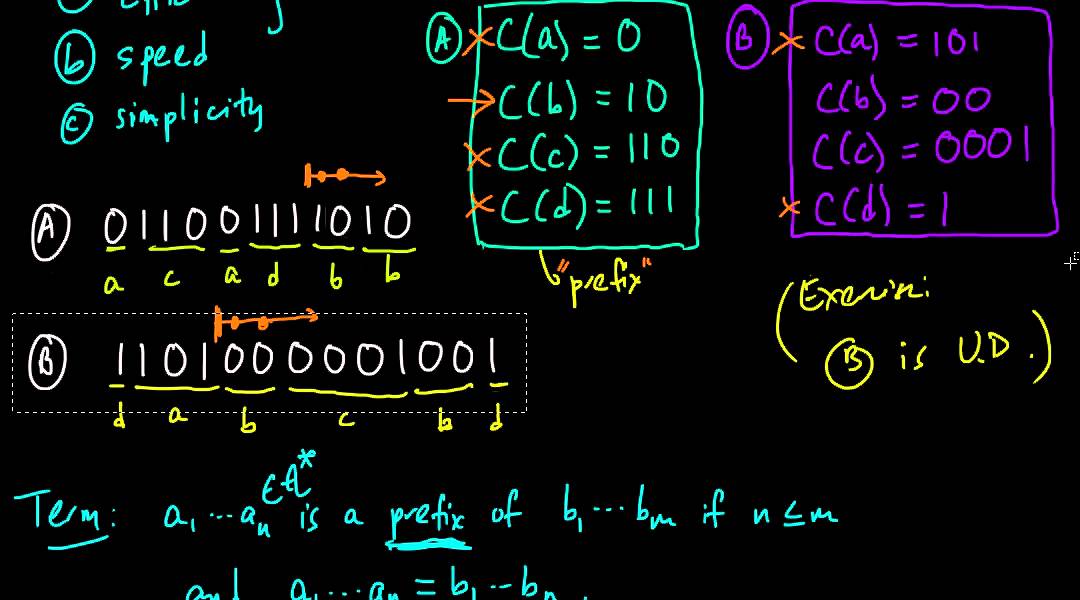 ⓑ speed
ⓒ simplicity
Ⓐ C(a) = 0
C(b) = 10
C(c) = 110
C(d) = 111
"prefix"
Ⓑ C(a) = 101
C(b) = 00
C(c) = 0001
C(d) = 1
(Exercise:
Ⓑ is U.D.)
Ⓐ 011001111010
a c a d b b
Ⓑ 1101000001001
d a b c b d
Term: a₁ ... aₙ ∈ A* is a prefix of b₁ ... bₘ if n ≤ m
and a₁ ... aₙ = b₁ ... bₙ.